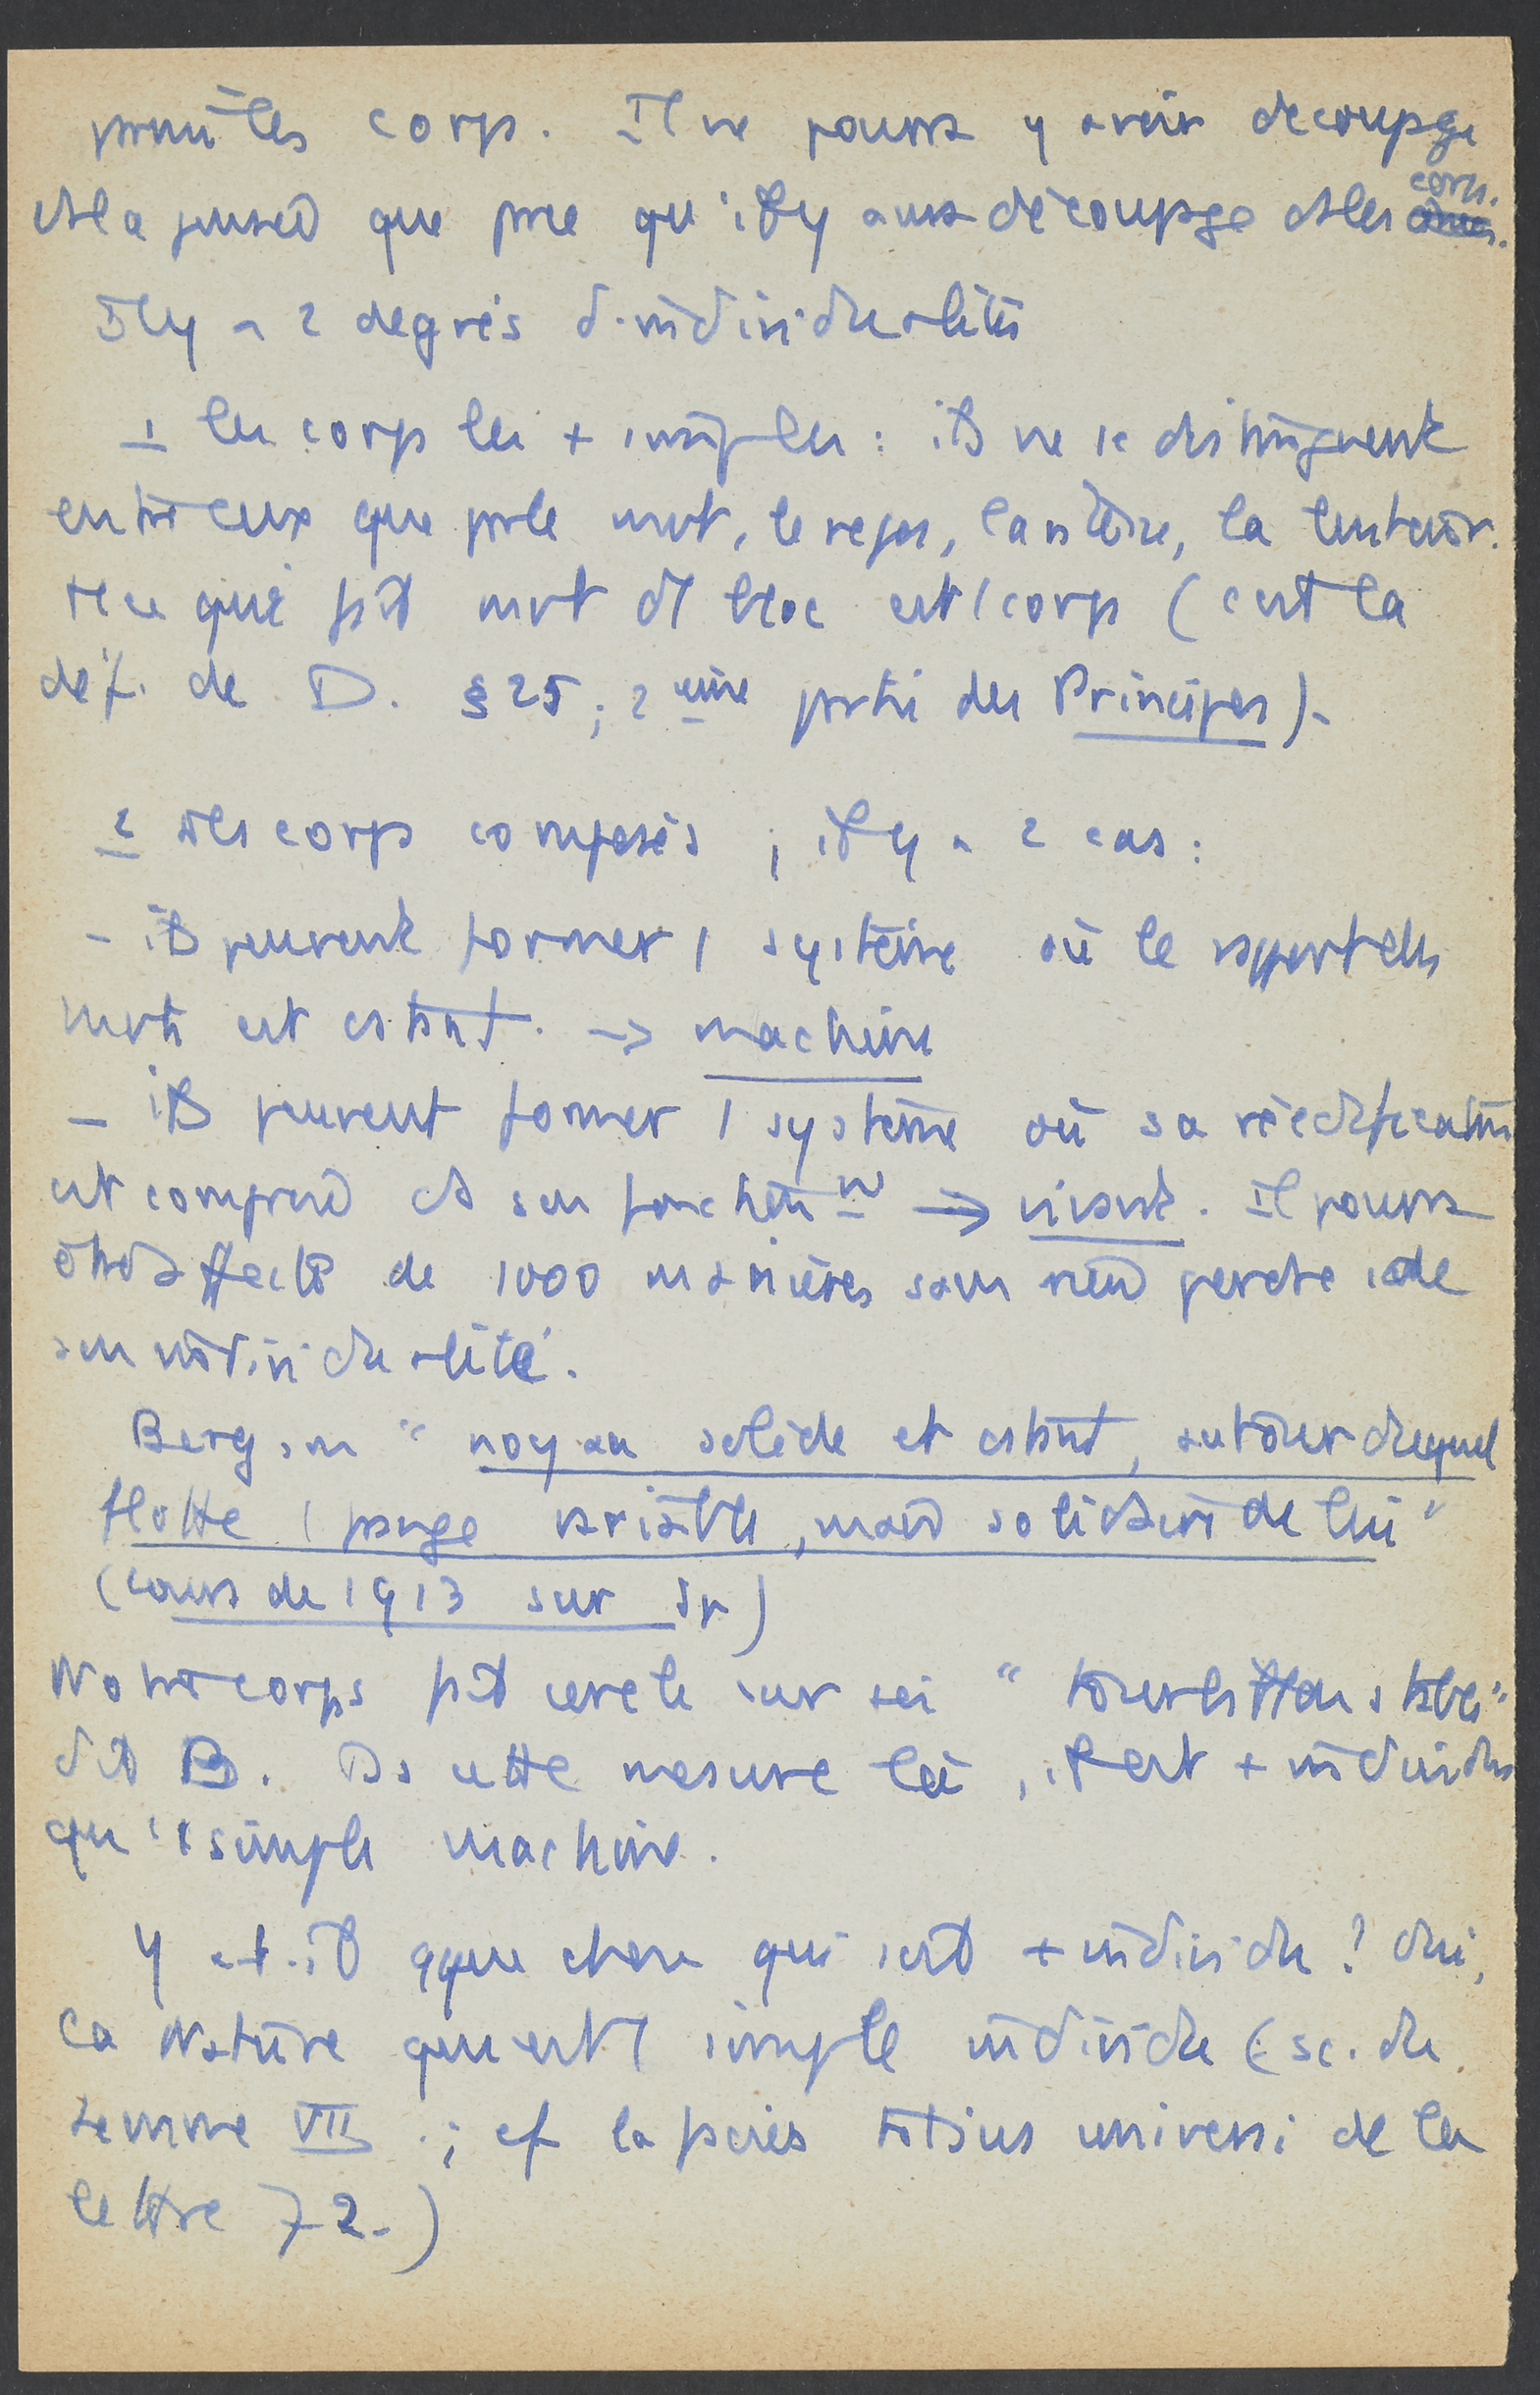 parmi les corps. Il ne pourra y avoir découpage
ds la pensée que pce qu'il y aura découpage ds les corps.
Il y a 2 degrés d'individualité
1 les corps les + simples : ils ne se distinguent
entre eux que par le mvt, le repos, la vitesse, la lenteur.
Tt ce qui est mvt d1 bloc est 1 corps (c'est la
déf. de D. § 25 ; 2ème partie des Principes).
2 Les corps composés ; il y a 2 cas :
- ils peuvent former 1 système où le rapport des
mvts est cstant. -> machine
- ils peuvent former 1 système où sa réédification
est comprise ds son fonctionnt -> vivant. Il pourra
être affecté de 1000 manières sans rien perdre de
son individualité.
Bergson " noyau solide et cstant, autour duquel
flotte 1 frange variable, mais solidaire de lui "
(cours de 1913 sur Sp)
Notre corps fait cercle sur soi " tourbillon stable "
dit B. Ds cette mesure là, il est + individu
qu'1 simple machine.
Y a-t-il qque chose qui soit + individu ? Oui,
la Nature qui est 1 simple individu (sc. du
lemme VII ; cf la facies totius universi de la
lettre 72-)